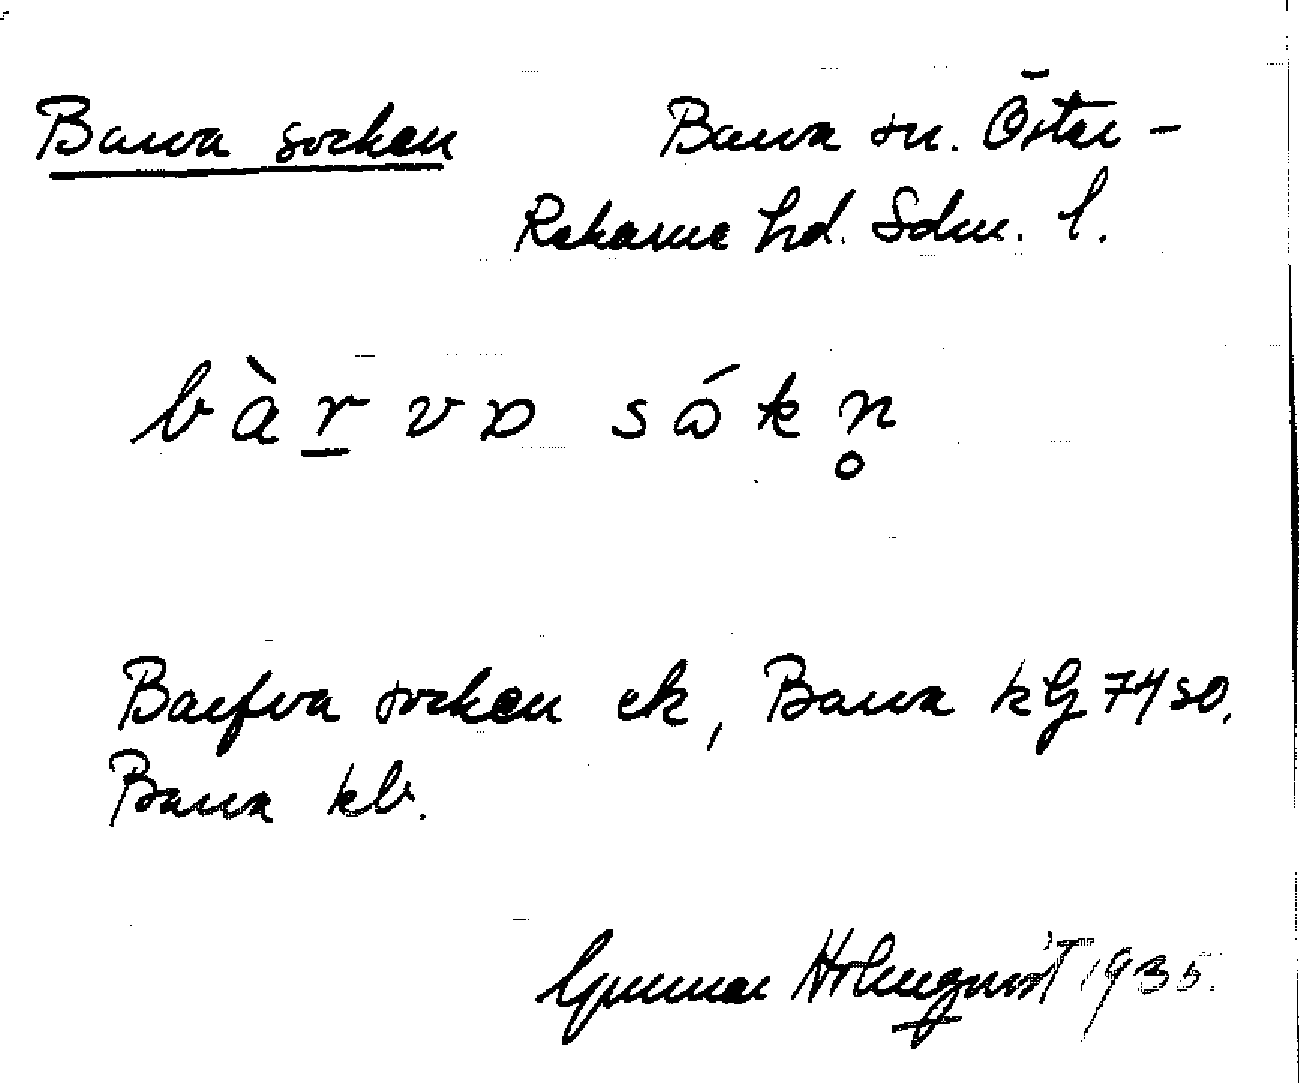 Barva socken Barva sn. Öster-
Rekarne hd. Sdm. l.
bàr̲vɒ sókn̥
Barfva socken ek, Barva kG 7450.
Barva kb.
Gunnar Holmqvist 1935.